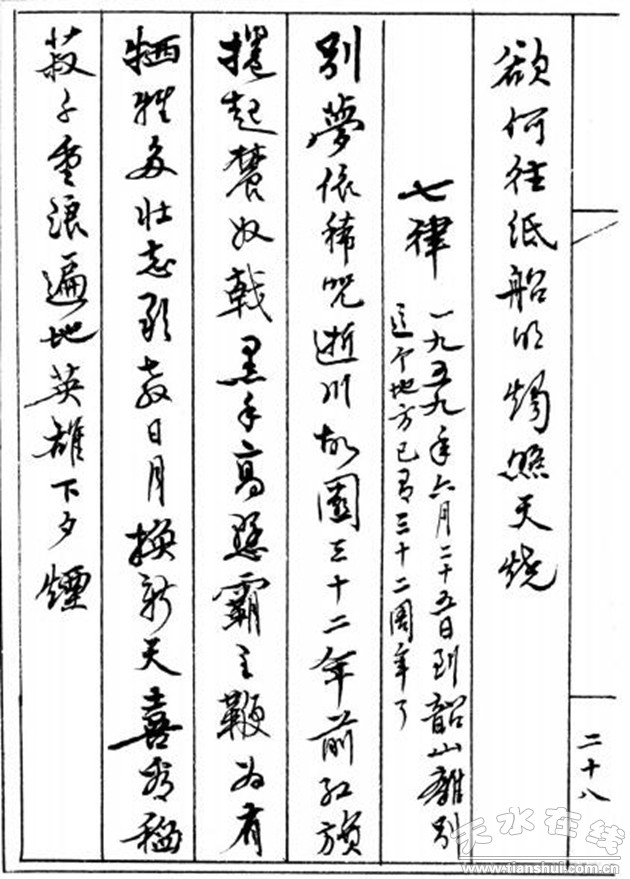 欲何往纸船明烛照天烧
七律
一九五九年六月二十五日到韶山離别
这个地方已有三十二周年了
别夢依稀咒逝川故園三十二年前红旗
捲起農奴戟黑手高懸霸主鞭为有
牺牲多壮志敢教日月换新天喜看稲
菽千重浪遍地英雄下夕煙
二十八
天水在线
www.tianshui.com.cn